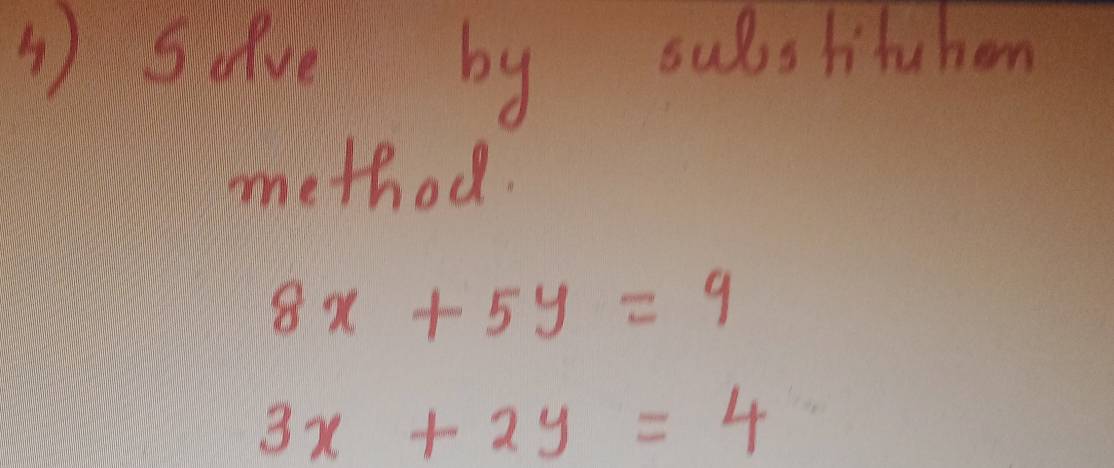 4) Solve by substitution
method.
8x + 5y = 9
3x + 2y = 4